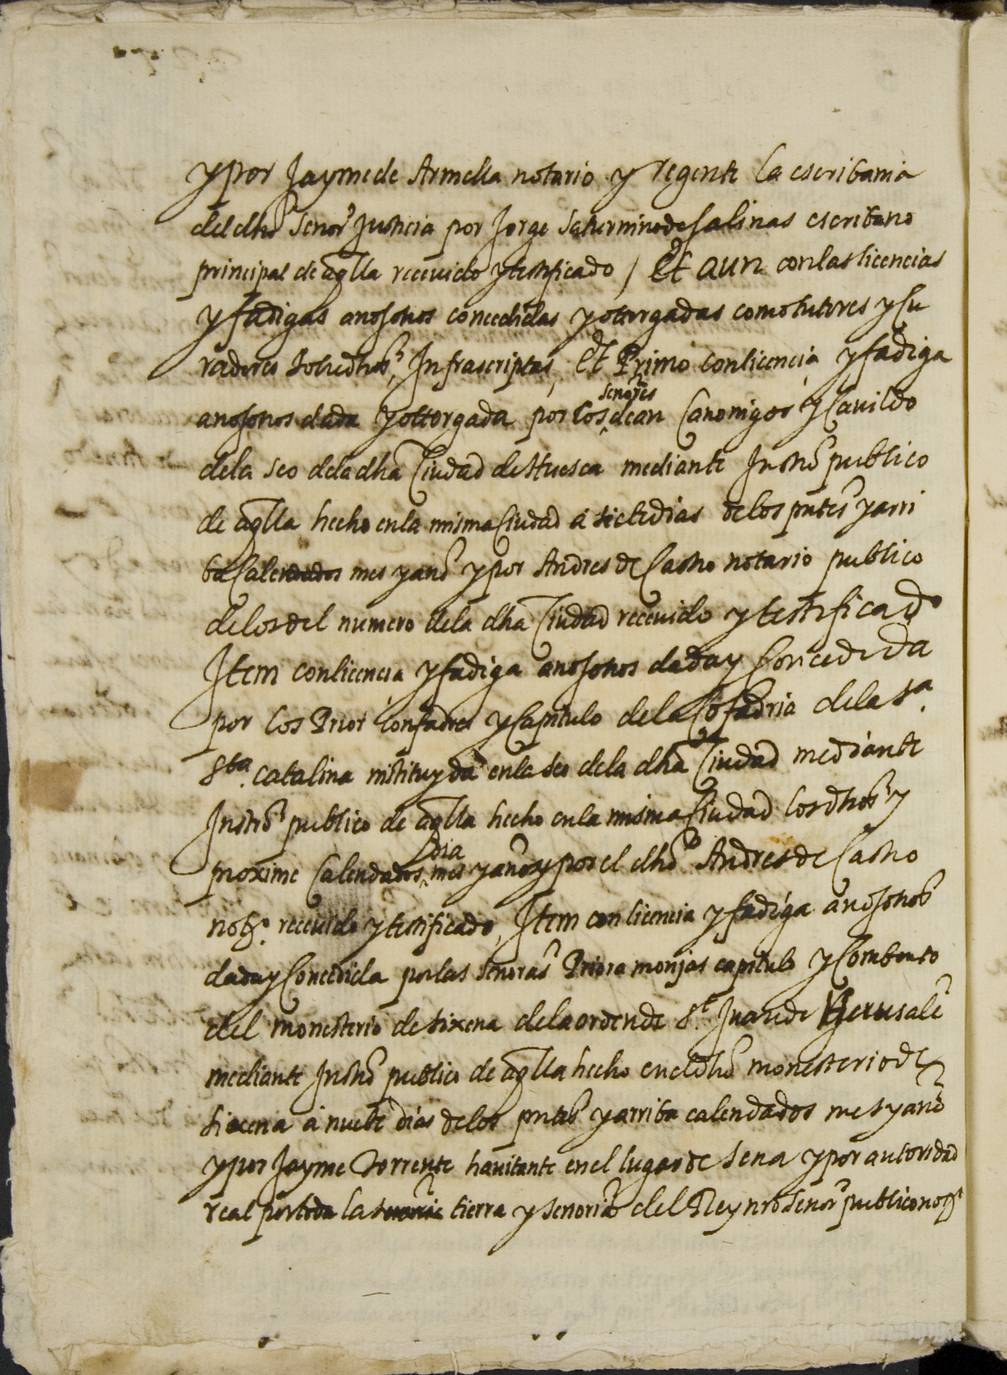 y por Jayme de Armella notario y regente la escribania
del dho señor Justicia por Jorge Saturnino de Salinas escribano
principal de aqlla recevido y testificado / Et aun con las licencias
y fadigas a nosotros concedidas y otorgadas como tutores y Cu
radores sobredhos Infrascriptas, Et Primo con licencia y fadiga
a nosotros dada y ottorgada por los señores dean Canonigos y Cavildo
dela seo dela dha Ciudad de Huesca mediante Instro publico
de aqlla hecho en la misma Ciudad a siete dias de los pntes y arri
ba Calendados mes y año y por Andres de Castro notario publico
de los del numero dela dha Ciudad recevido y testificado
Item con licencia y fadiga a nosotros dada y Concedida
por los Prior Confadres y Capitulo de la Cofadria dela Sa.
Sta. Catalina instituyda en la seo dela dha Ciudad mediante
Instro publico de aqlla hecho en la misma Ciudad los dhos y
proxime Calendados dia mes y año y por el dho Andres de Castro
notº. recevido y testificado, Item con licencia y fadiga a nosotros
dada y Concedida por las señoras Priora monjas capitulo y Combento
del monesterio de sixena dela orden de St. Juan de Hierusale
mediante Instro publico de aqlla hecho en el dho monesterio de
sixena a nuebe dias de los pntes y arriba calendados mes y año
y por Jayme Torrente havitante en el lugar de Sena y por autoridad
real por toda la tierra y señoria del Rey nro señor publico notº